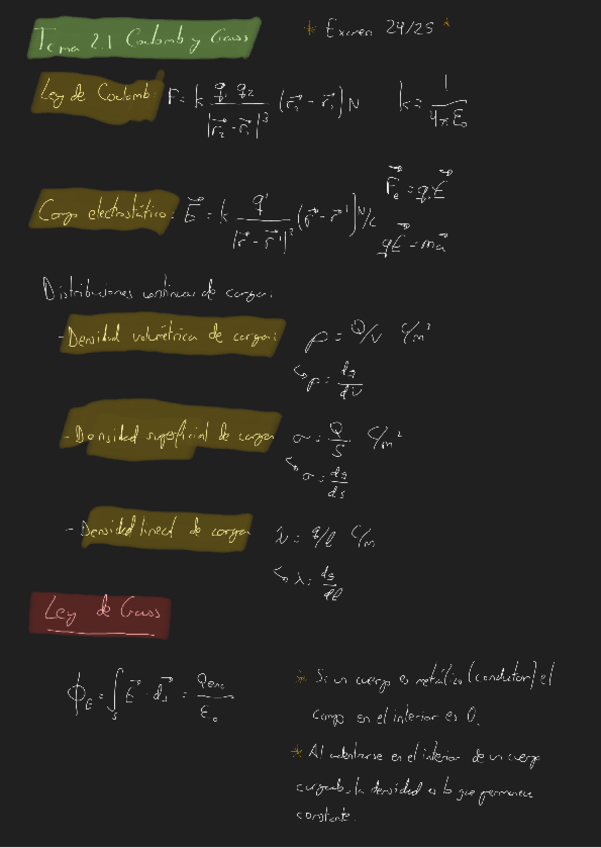 Tema 2.1 Coulomb y Gauss
* Examen 24/25 *
Ley de Coulomb: F = k q₁ q₂ / |r⃗₂ - r⃗₁|³ (r⃗₂ - r⃗₁) N   k = 1 / 4πε₀
F⃗e = q·E⃗
Campo electrostático: E⃗ = k q' / |r⃗ - r⃗'|³ (r⃗ - r⃗') N/C
qE⃗ = ma⃗
Distribuciones continuas de carga:
- Densidad volumétrica de carga: ρ = Q/V C/m³
↳ ρ = dq/dV
- Densidad superficial de carga σ = Q/S C/m²
↳ σ = dq/ds
- Densidad lineal de carga λ = q/l C/m
↳ λ = dq/dl
Ley de Gauss
ϕE = ∫s E⃗ · ds⃗ = Qenc / ε₀
* Si un cuerpo es metálico (conductor) el
campo en el interior es 0.
* Al adentrarse en el interior de un cuerpo
cargado, la densidad es lo que permanece
constante.